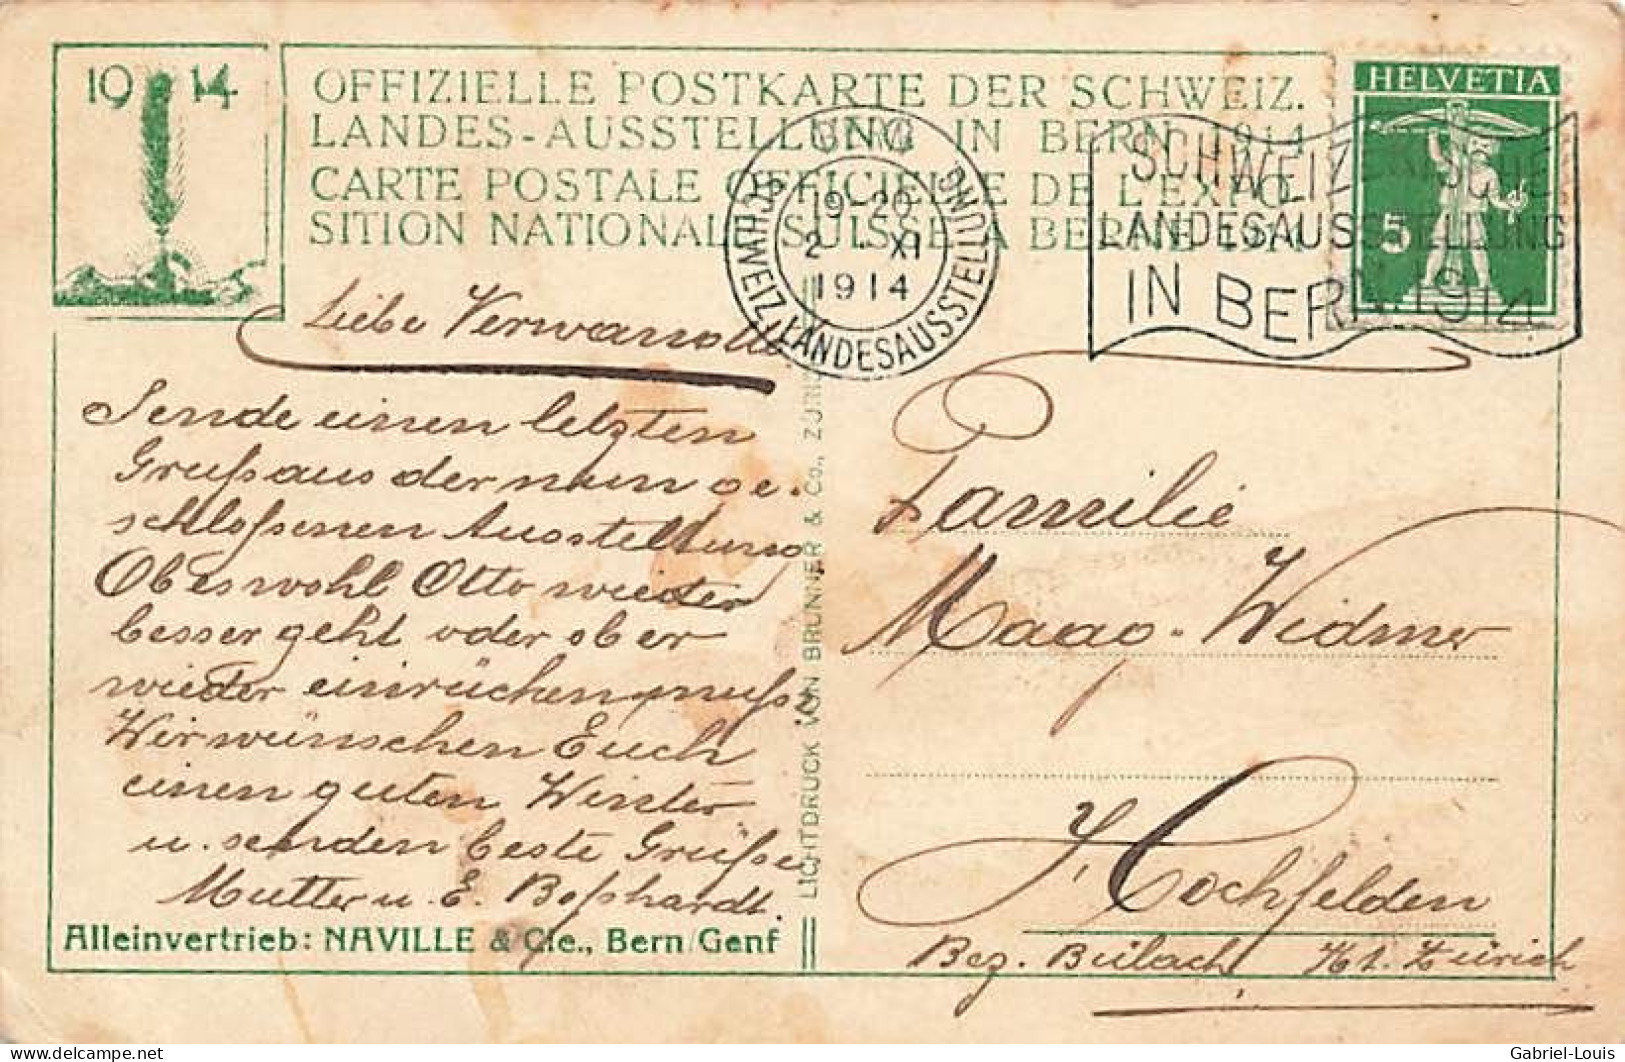 1914
OFFIZIELLE POSTKARTE DER SCHWEIZ.
LANDES-AUSSTELLUNG IN BERN 1914
CARTE POSTALE OFFICIELLE DE L'EXPO-
SITION NATIONALE SUISSE A BERNE 1914
HELVETIA
5
BERN
SCHWEIZ. LANDESAUSSTELLUNG
19-20
2. XI
1914
SCHWEIZERISCHE
LANDESAUSSTELLUNG
IN BERN 1914
Liebe Verwandte
Sende einen letzten
Gruß aus der nun ge-
schloßenen Ausstellung
Ob es wohl Otto wieder
besser geht oder ob er
wieder einrücken muß?
Wir wünschen Euch
einen guten Winter
u. senden beste Grüße
Mutter u. E. Boßhardt.
Familie
Maag-Widmer
Hochfelden
Bez. Bülach Kt. Zürich
LICHTDRUCK VON BRUNNER & Co., ZÜRICH
Alleinvertrieb: NAVILLE & Cie., Bern/Genf
delcampe.net
Gabriel-Louis